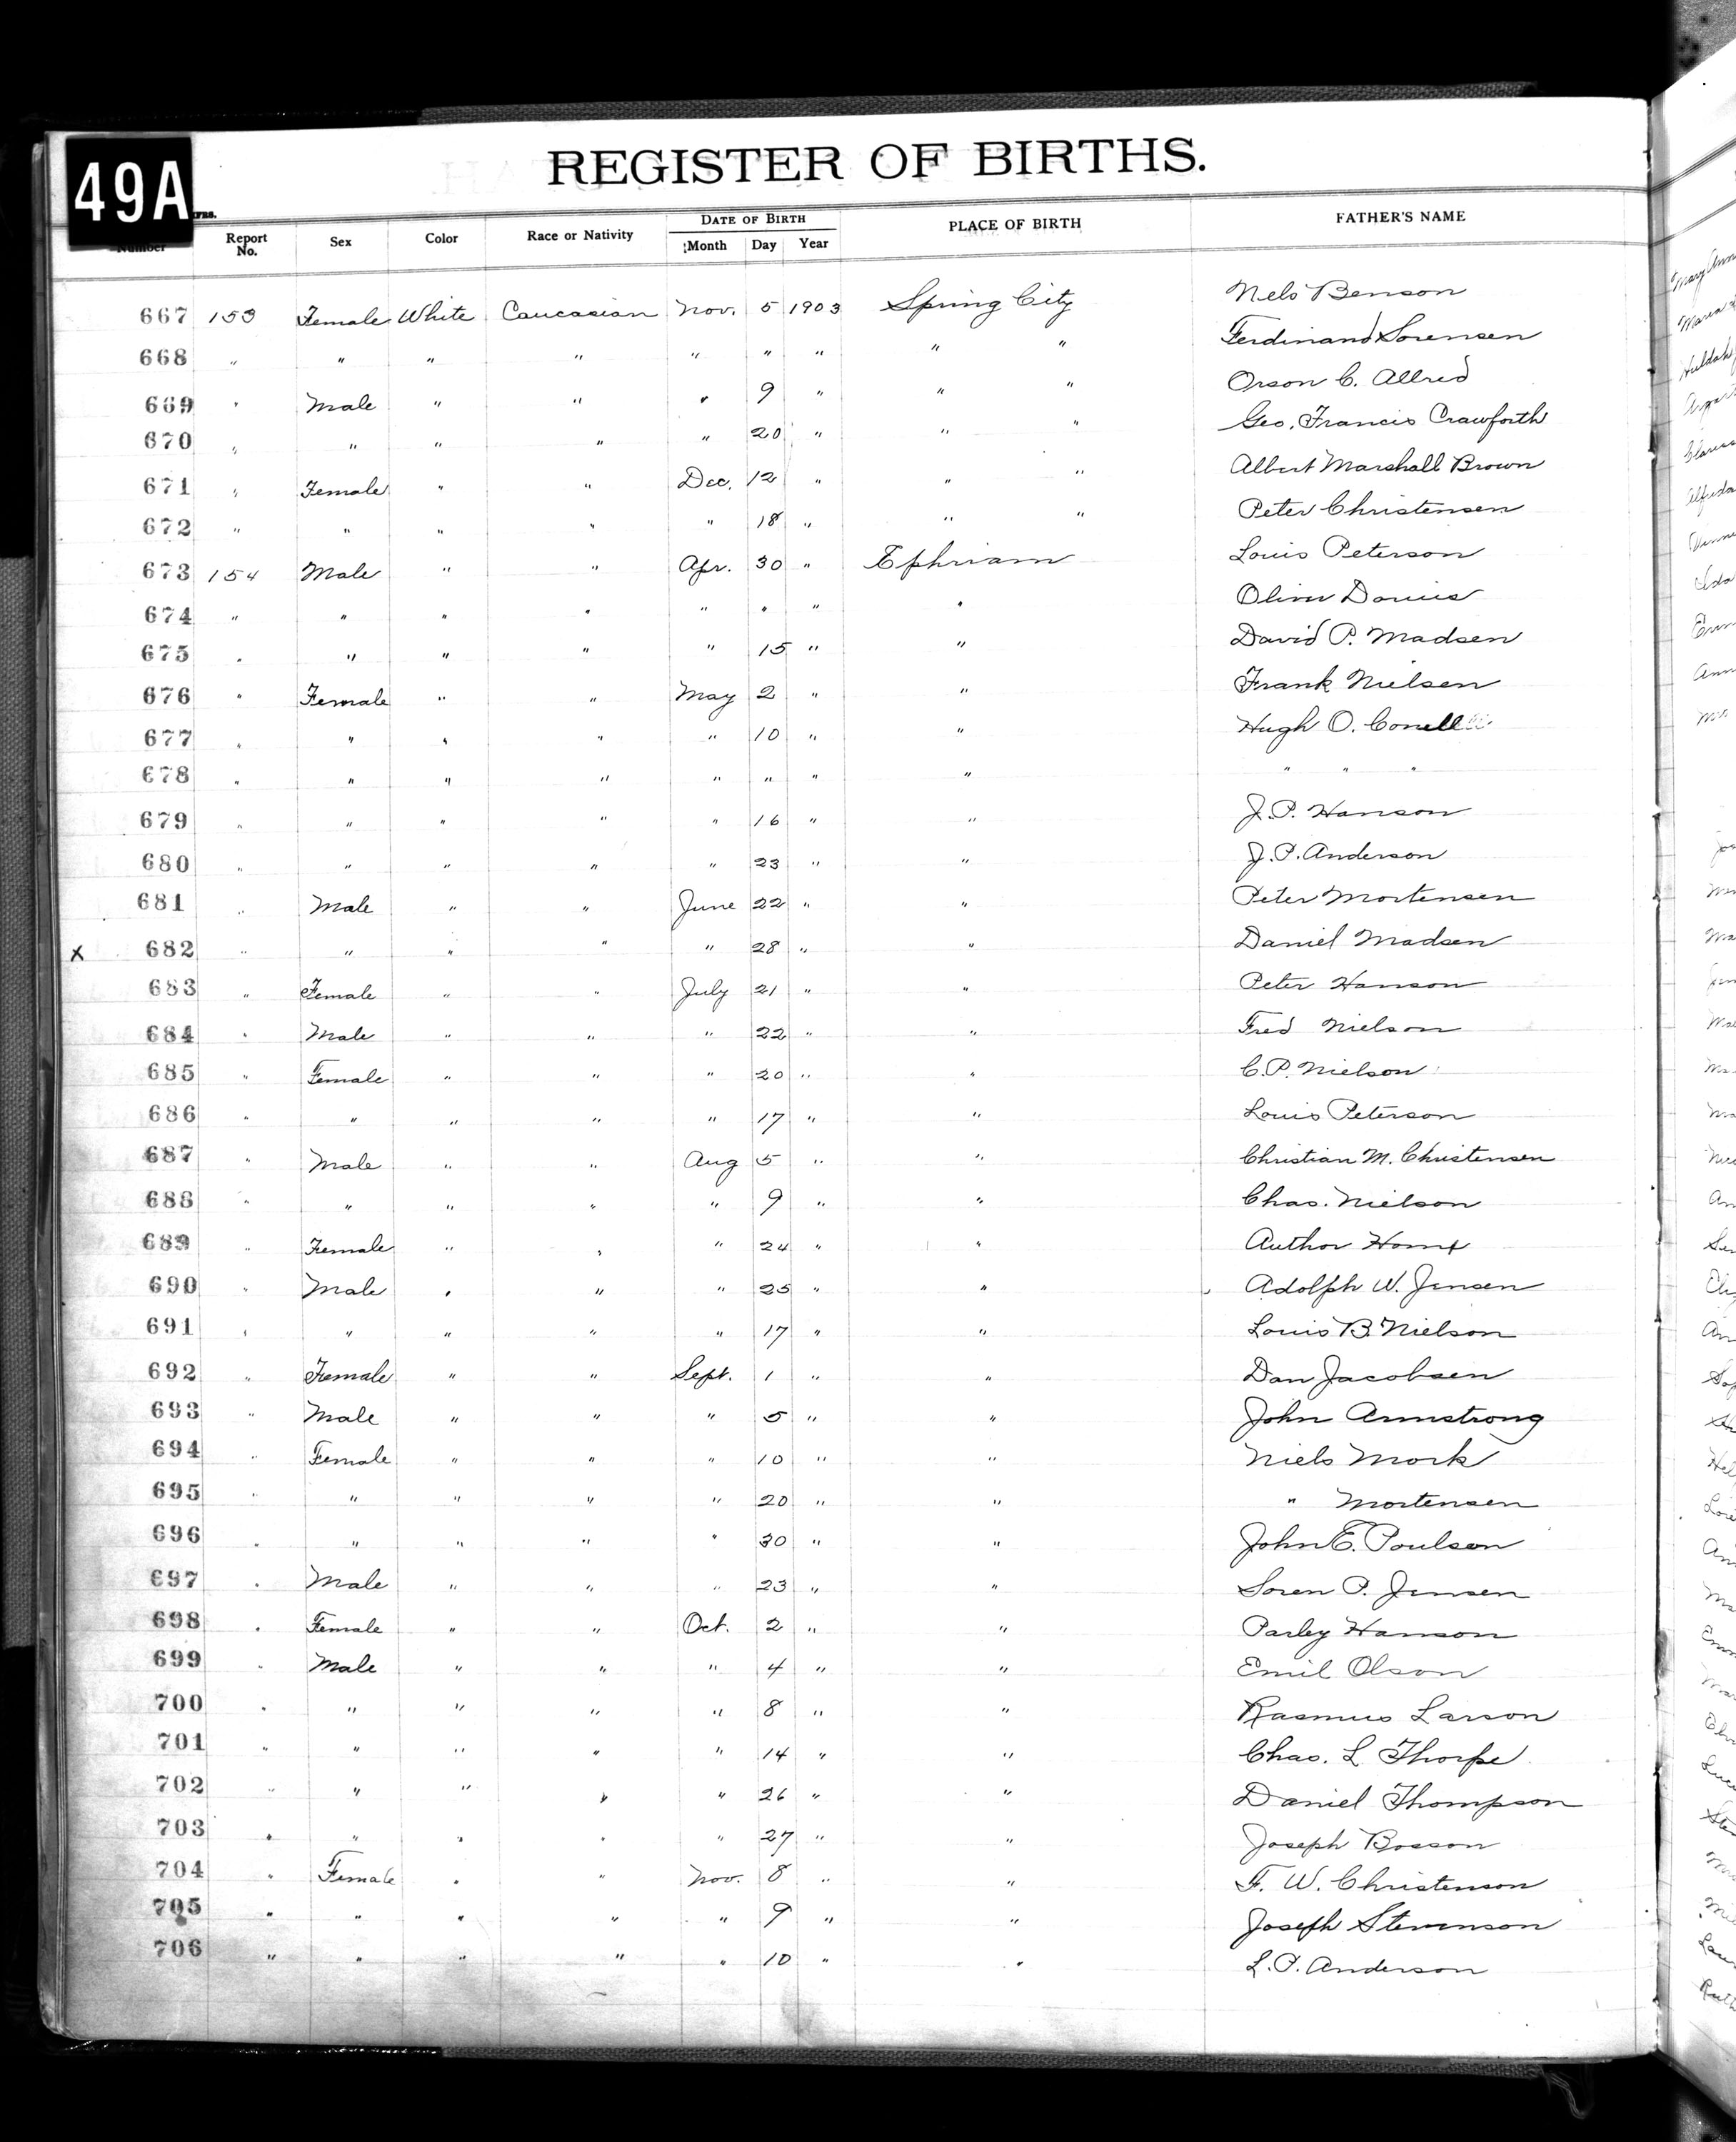 49A
REGISTER OF BIRTHS.
Number Report No. Sex Color Race or Nativity DATE OF BIRTH Month Day Year PLACE OF BIRTH FATHER'S NAME
667 153 Female White Caucasian Nov. 5 1903 Spring City Nels Benson
668 " " " " " " " " " Ferdinand Sorensen
669 " Male " " " 9 " " " Orson C. Allred
670 " " " " " 20 " " " Geo. Francis Crawforth
671 " Female " " Dec. 12 " " " Albert Marshall Brown
672 " " " " " 18 " " " Peter Christensen
673 154 Male " " Apr. 30 " Ephriam Louis Peterson
674 " " " " " " " " Oliver
675 " " " " " 15 " " David P. Madsen
676 " Female " " May 2 " " Frank Nielsen
677 " " " " " 10 " " Hugh O. Conell
678 " " " " " " " " " " "
679 " " " " " 16 " " J. P. Hanson
680 " " " " " 23 " " J. P. Anderson
681 " Male " " June 22 " " Peter Mortensen
x 682 " " " " " 28 " " Daniel Madsen
683 " Female " " July 21 " " Peter Hanson
684 " Male " " " 22 " " Fred Nielson
685 " Female " " " 20 " " C. P. Nielson
686 " " " " " 17 " " Louis Peterson
687 " Male " " Aug 5 " " Christian M. Christensen
688 " " " " " 9 " " Chas. Nielson
689 " Female " " " 24 " " Author
690 " Male " " " 25 " " Adolph W. Jensen
691 " " " " " 17 " " Louis B. Nielson
692 " Female " " Sept. 1 " " Dan Jacobsen
693 " Male " " " 5 " " John Armstrong
694 " Female " " " 10 " " Niels Mork
695 " " " " " 20 " " " Mortensen
696 " " " " " 30 " " John E. Poulson
697 " Male " " " 23 " " Soren P. Jensen
698 " Female " " Oct. 2 " " Parley Hanson
699 " Male " " " 4 " " Emil Olson
700 " " " " " 8 " " Rasmus Larson
701 " " " " " 14 " " Chas. L Thorpe
702 " " " " " 26 " " Daniel Thompson
703 " " " " " 27 " " Joseph Bosson
704 " Female " " Nov. 8 " " F. W. Christenson
705 " " " " " 9 " " Joseph Stevenson
706 " " " " " 10 " " L. P. Anderson